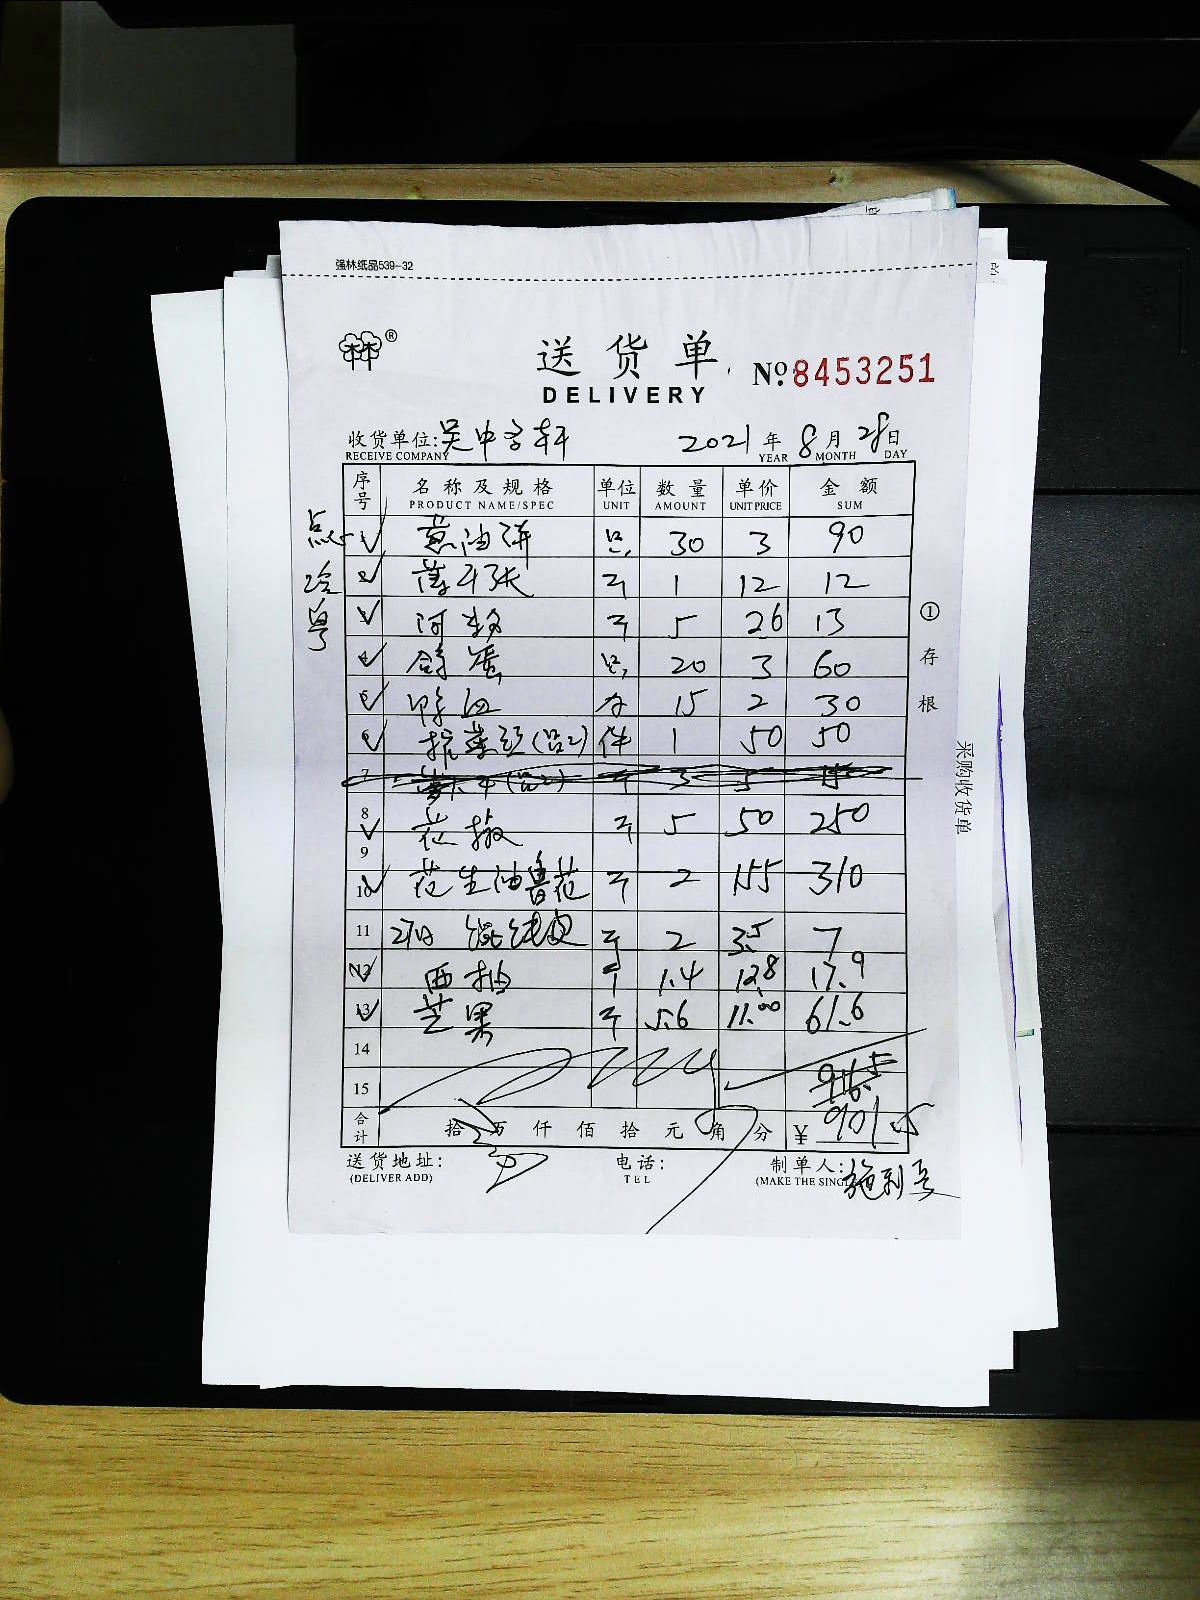 强林纸品539-32
®
送货单
DELIVERY
№8453251
收货单位:吴中方轩 2021年8月28日
RECEIVE COMPANY YEAR MONTH DAY
序号 名称及规格 单位 数量 单价 金额
PRODUCT NAME/SPEC UNIT AMOUNT UNIT PRICE SUM
点心 1 葱油饼 只 30 3 90
冷 2 薄千张 斤 1 12 12
粤 5 26 13
4 鸽蛋 只 20 3 60
15 2 30
件 1 50 50
7 斤 3 5 15
8 花椒 斤 5 50 250
9
10 花生油鲁花 2 155 310
11 馄饨皮 斤 2 3.5 7
12 西柚 1.4 12.8 17.9
13 芒果 斤 5.6 11.00 61.6
14
15 916.5
合计 拾万仟佰拾元角分 ¥ 901.5
送货地址: 电话: 制单人:
(DELIVER ADD) TEL (MAKE THE SINGLE
①存根
采购收货单